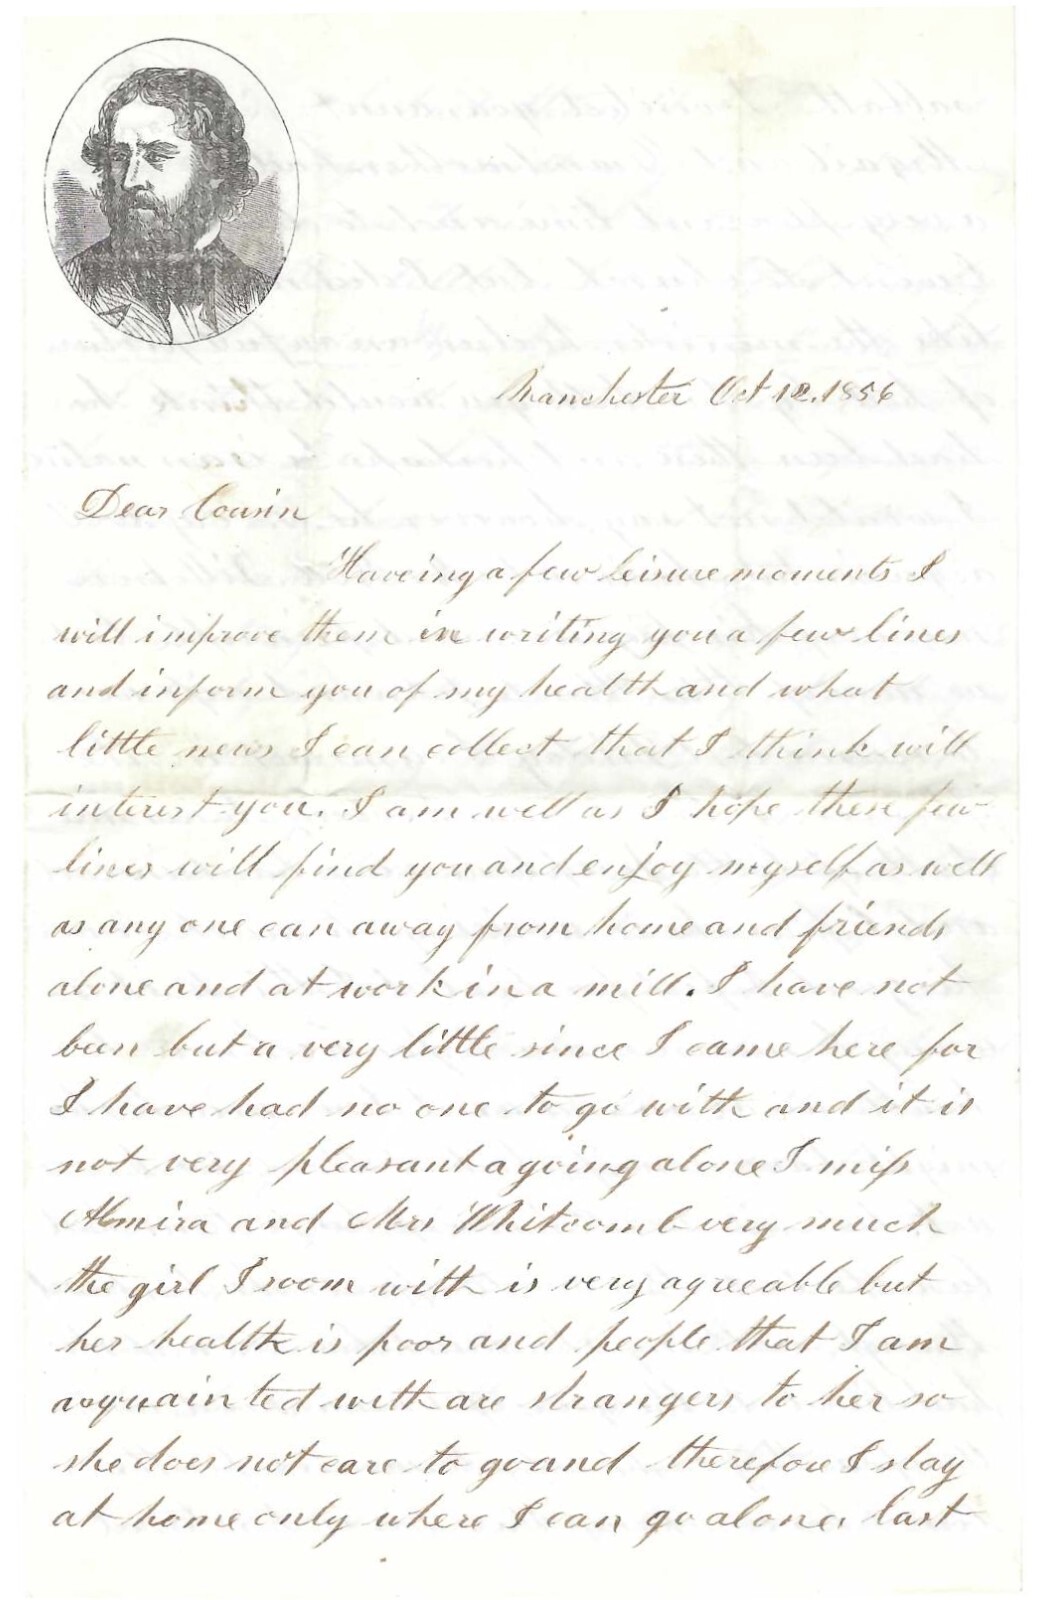 Manchester Oct 12. 1856
Dear Cousin
Haveing a few leisure moments I
will improve them in writing you a few lines
and inform you of my health and what
little news I can collect that I think will
interest you. I am well as I hope these few
lines will find you and enjoy myself as well
as any one can away from home and friends
alone and at work in a mill. I have not
been but a very little since I came here for
I have had no one to go with and it is
not very pleasant a going alone I miss
Almira and Mrs Whitcomb very much
the girl I room with is very agreeable but
her health is poor and people that I am
aquainted with are strangers to her so
she does not care to go and therefore I stay
at home only where I can go alone. last